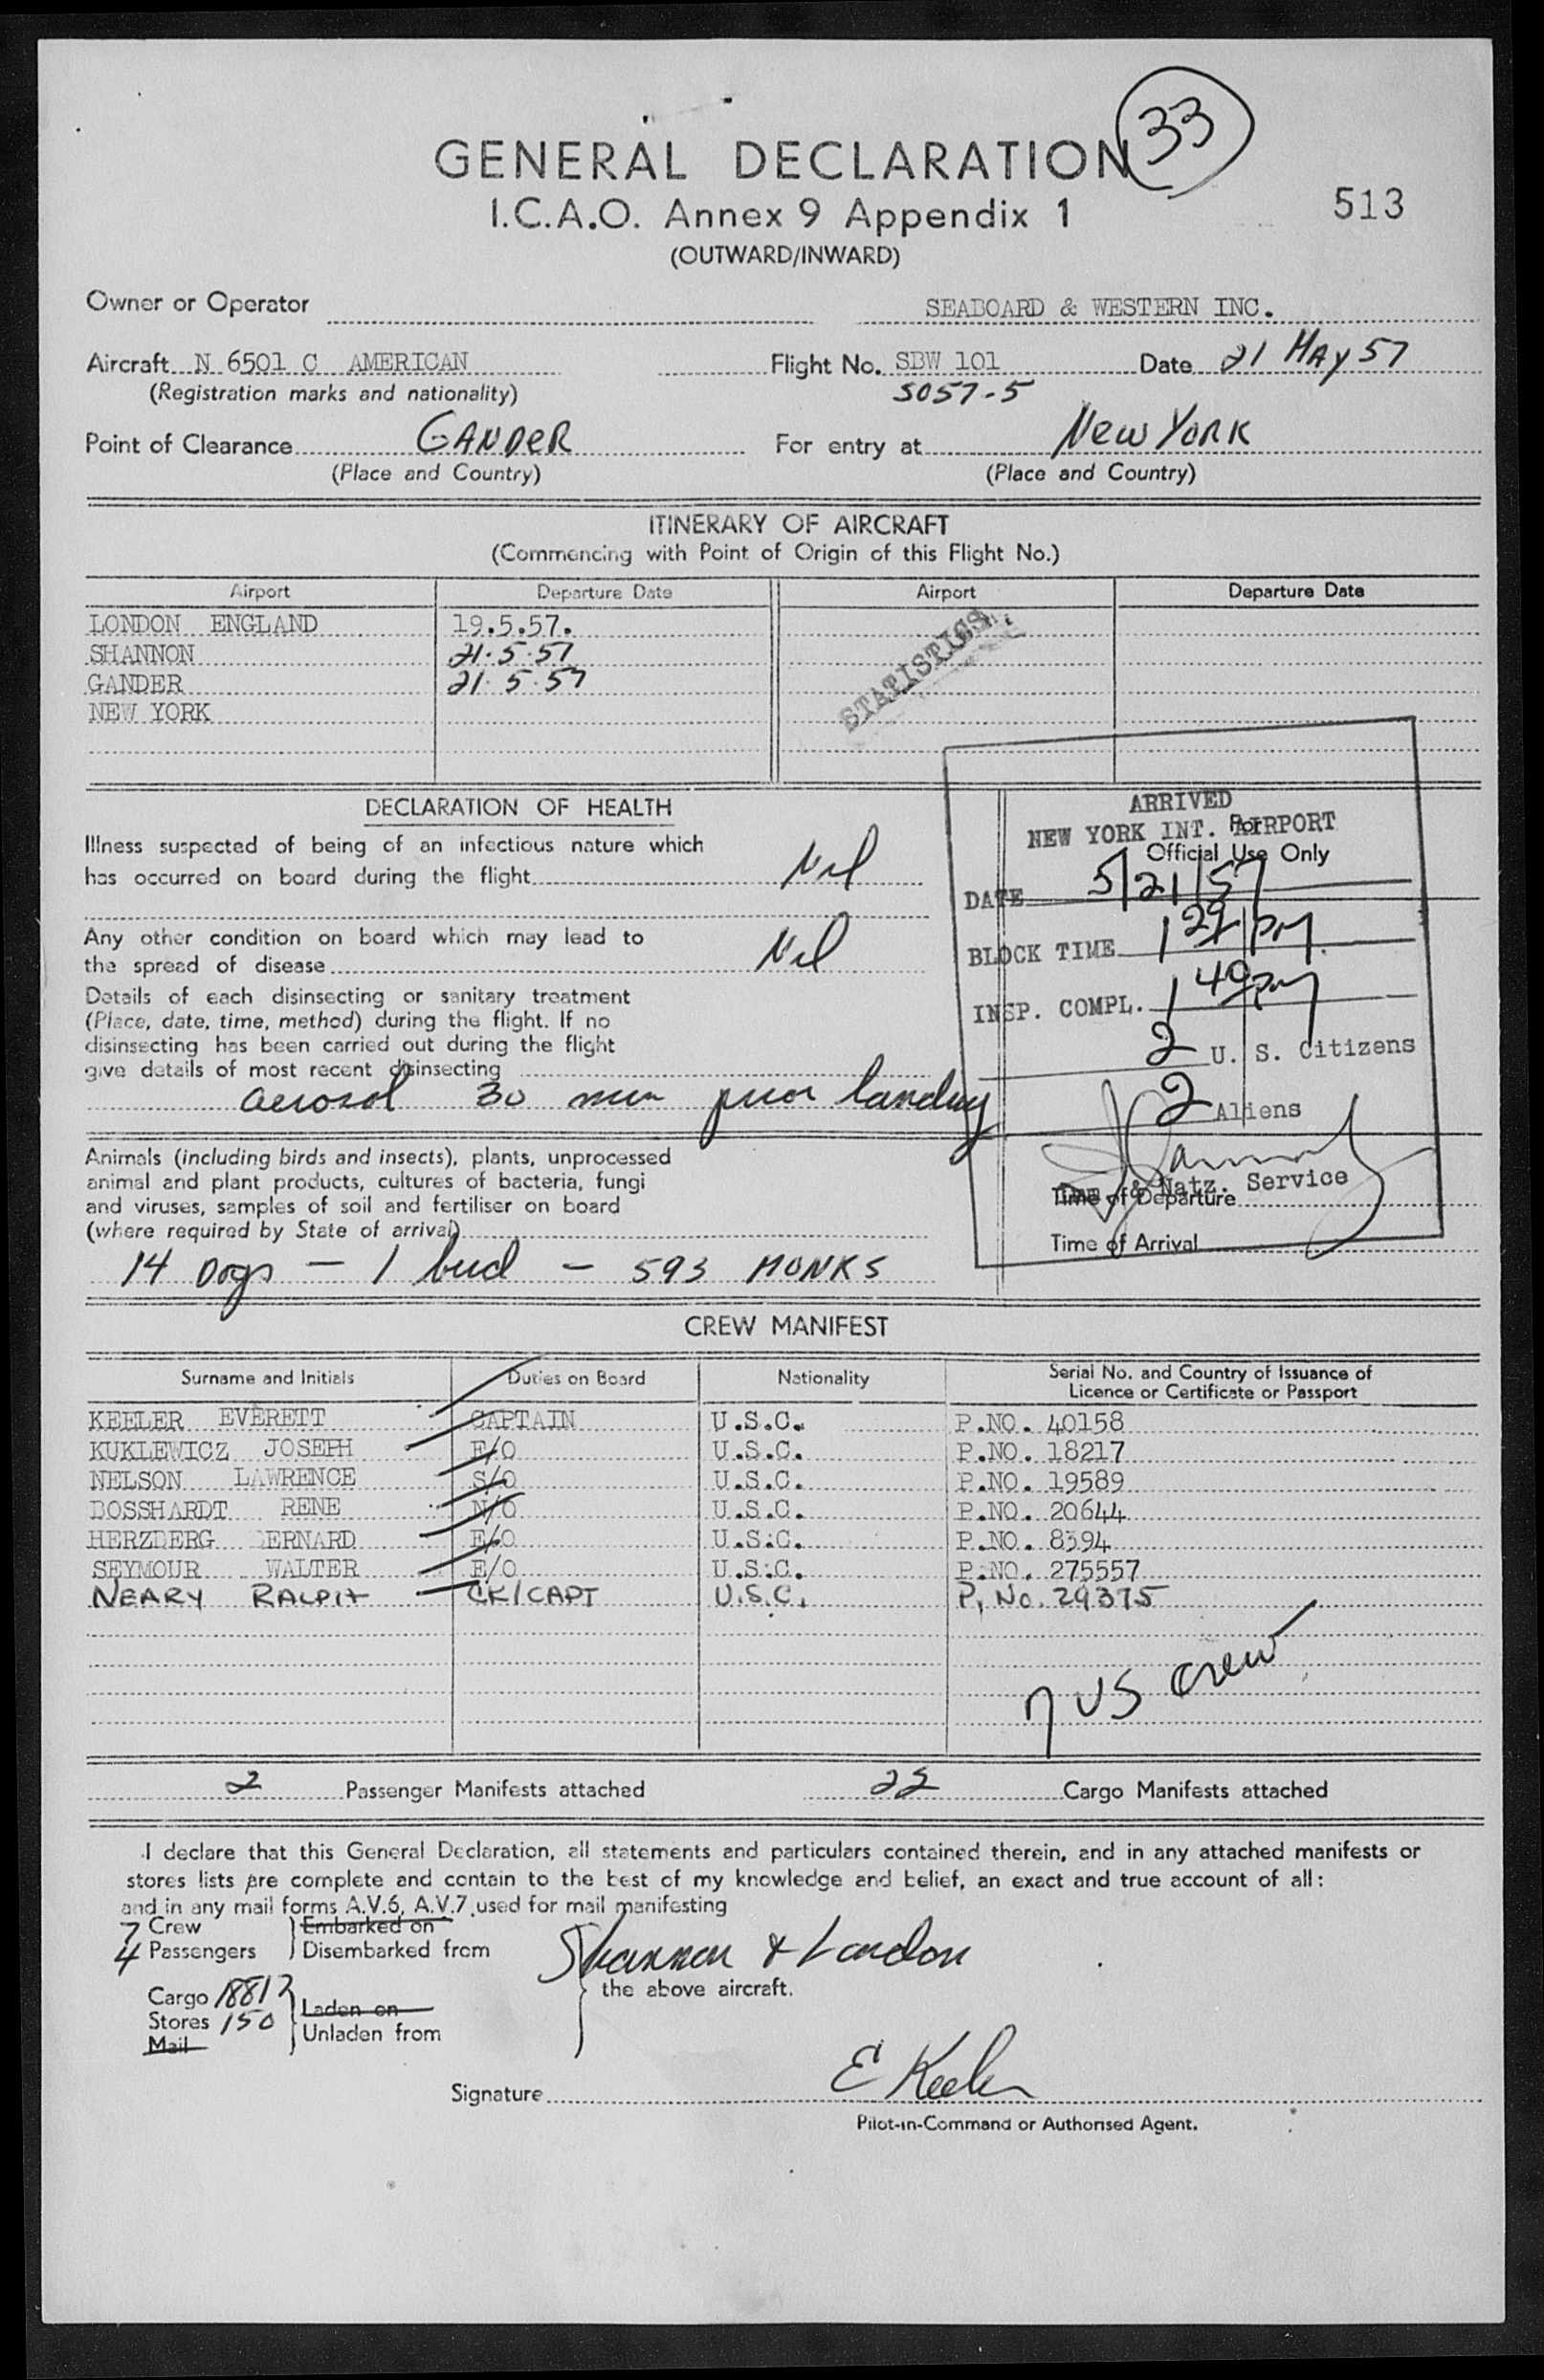 33
GENERAL DECLARATION
I.C.A.O. Annex 9 Appendix 1
513
(OUTWARD/INWARD)
Owner or Operator SEABOARD & WESTERN INC.
Aircraft N 6501 C AMERICAN Flight No. SBW 101 Date 21 MAY 57
(Registration marks and nationality) 5057-5
Point of Clearance GANDER For entry at New YORK
(Place and Country) (Place and Country)
ITINERARY OF AIRCRAFT
(Commencing with Point of Origin of this Flight No.)
Airport Departure Date Airport Departure Date
LONDON ENGLAND 19.5.57.
SHANNON 21.5.57
GANDER 21.5.57
NEW YORK
STATISTICS
DECLARATION OF HEALTH
Illness suspected of being of an infectious nature which
has occurred on board during the flight Nil
Any other condition on board which may lead to
the spread of disease Nil
Details of each disinsecting or sanitary treatment
(Place, date, time, method) during the flight. If no
disinsecting has been carried out during the flight
give details of most recent disinsecting
aerosol 30 min prior landing
Animals (including birds and insects), plants, unprocessed
animal and plant products, cultures of bacteria, fungi
and viruses, samples of soil and fertiliser on board
(where required by State of arrival)
14 Dogs - 1 bird - 593 MONKS
ARRIVED
NEW YORK INT. AIRPORT
For
Official Use Only
DATE 5/21/57
BLOCK TIME 1 29 pm
INSP. COMPL. 1 40 pm
2 U. S. Citizens
2 Aliens
& Natz. Service
Time of Departure
Time of Arrival
CREW MANIFEST
Surname and Initials Duties on Board Nationality Serial No. and Country of Issuance of
Licence or Certificate or Passport
KEELER EVERETT CAPTAIN U.S.C. P.NO. 40158
KUKLEWICZ JOSEPH F/O U.S.C. P.NO. 18217
NELSON LAWRENCE S/O U.S.C. P.NO. 19589
BOSSHARDT RENE N/O U.S.C. P.NO. 20644
HERZBERG BERNARD E/O U.S.C. P.NO. 8394
SEYMOUR WALTER E/O U.S.C. P.NO. 275557
NEARY RALPH CK/CAPT U.S.C. P. No. 29375
7 US crew
2 Passenger Manifests attached 22 Cargo Manifests attached
I declare that this General Declaration, all statements and particulars contained therein, and in any attached manifests or
stores lists are complete and contain to the best of my knowledge and belief, an exact and true account of all:
and in any mail forms A.V.6, A.V.7 used for mail manifesting
7 Crew Embarked on
4 Passengers Disembarked from Shannon & London
the above aircraft.
Cargo 18812 Laden on
Stores 150 Unladen from
Mail
Signature E Keeler
Pilot-in-Command or Authorised Agent.